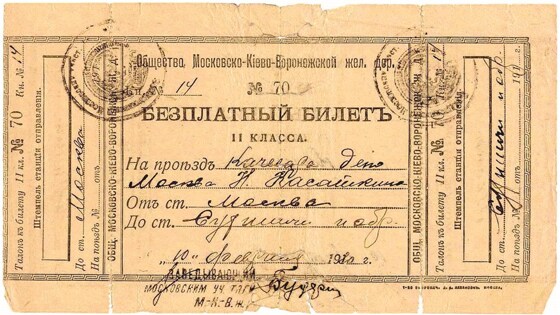 Общество Московско-Кіево-Воронежской жел. дор.
Кн. 14 № 70
БЕЗПЛАТНЫЙ БИЛЕТЪ
II КЛАССА.
На проѣздъ
Москва Н. Касаткина
Отъ ст. Москва
До ст.
"10" февраля
ЗАВЕДЫВАЮЩІЙ
МОСКОВСКИМЪ УЧ. ТЯГИ
М.-К.-В. ж.
Талонъ къ билету II кл. № 70 Кн. № 14
Штемпель станціи отправленія.
До ст. Москва
На поѣздъ № отъ
ОБЩ. МОСКОВСКО-КІЕВО-ВОРОНЕЖСКОЙ Ж. Д.
ОБЩ. МОСКОВСКО-КІЕВО-ВОРОНЕЖСКОЙ Ж. Д.
Талонъ къ билету II кл. № 70 Кн. № 14
Штемпель станціи отправленія.
До ст.
На поѣздъ № отъ